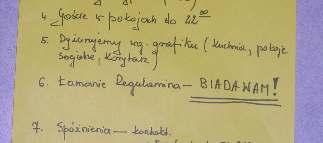 4. Goście w pokojach do 22⁰⁰
5. Dyżurujemy wg. grafiku (kuchnia, pokoje
socjalne, korytarz)
6. Łamanie Regulaminu — BIADA WAM!
7. Spóźnienia — kontakt.